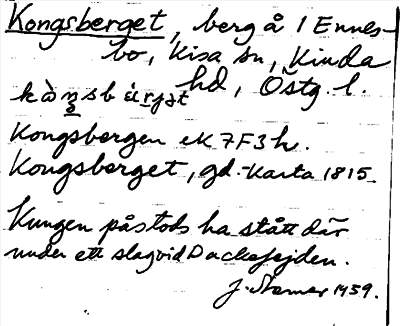 Kongsberget, berg å 1 Ennes-
bo, Kisa sn, Kinda
hd, Östg. l.
Kongsbergen ek 7F3h.
Kongsberget, gd.-Karta 1815.
Kungen påstods ha stått där
under ett slag vid Dackefejden.
J. 1959.